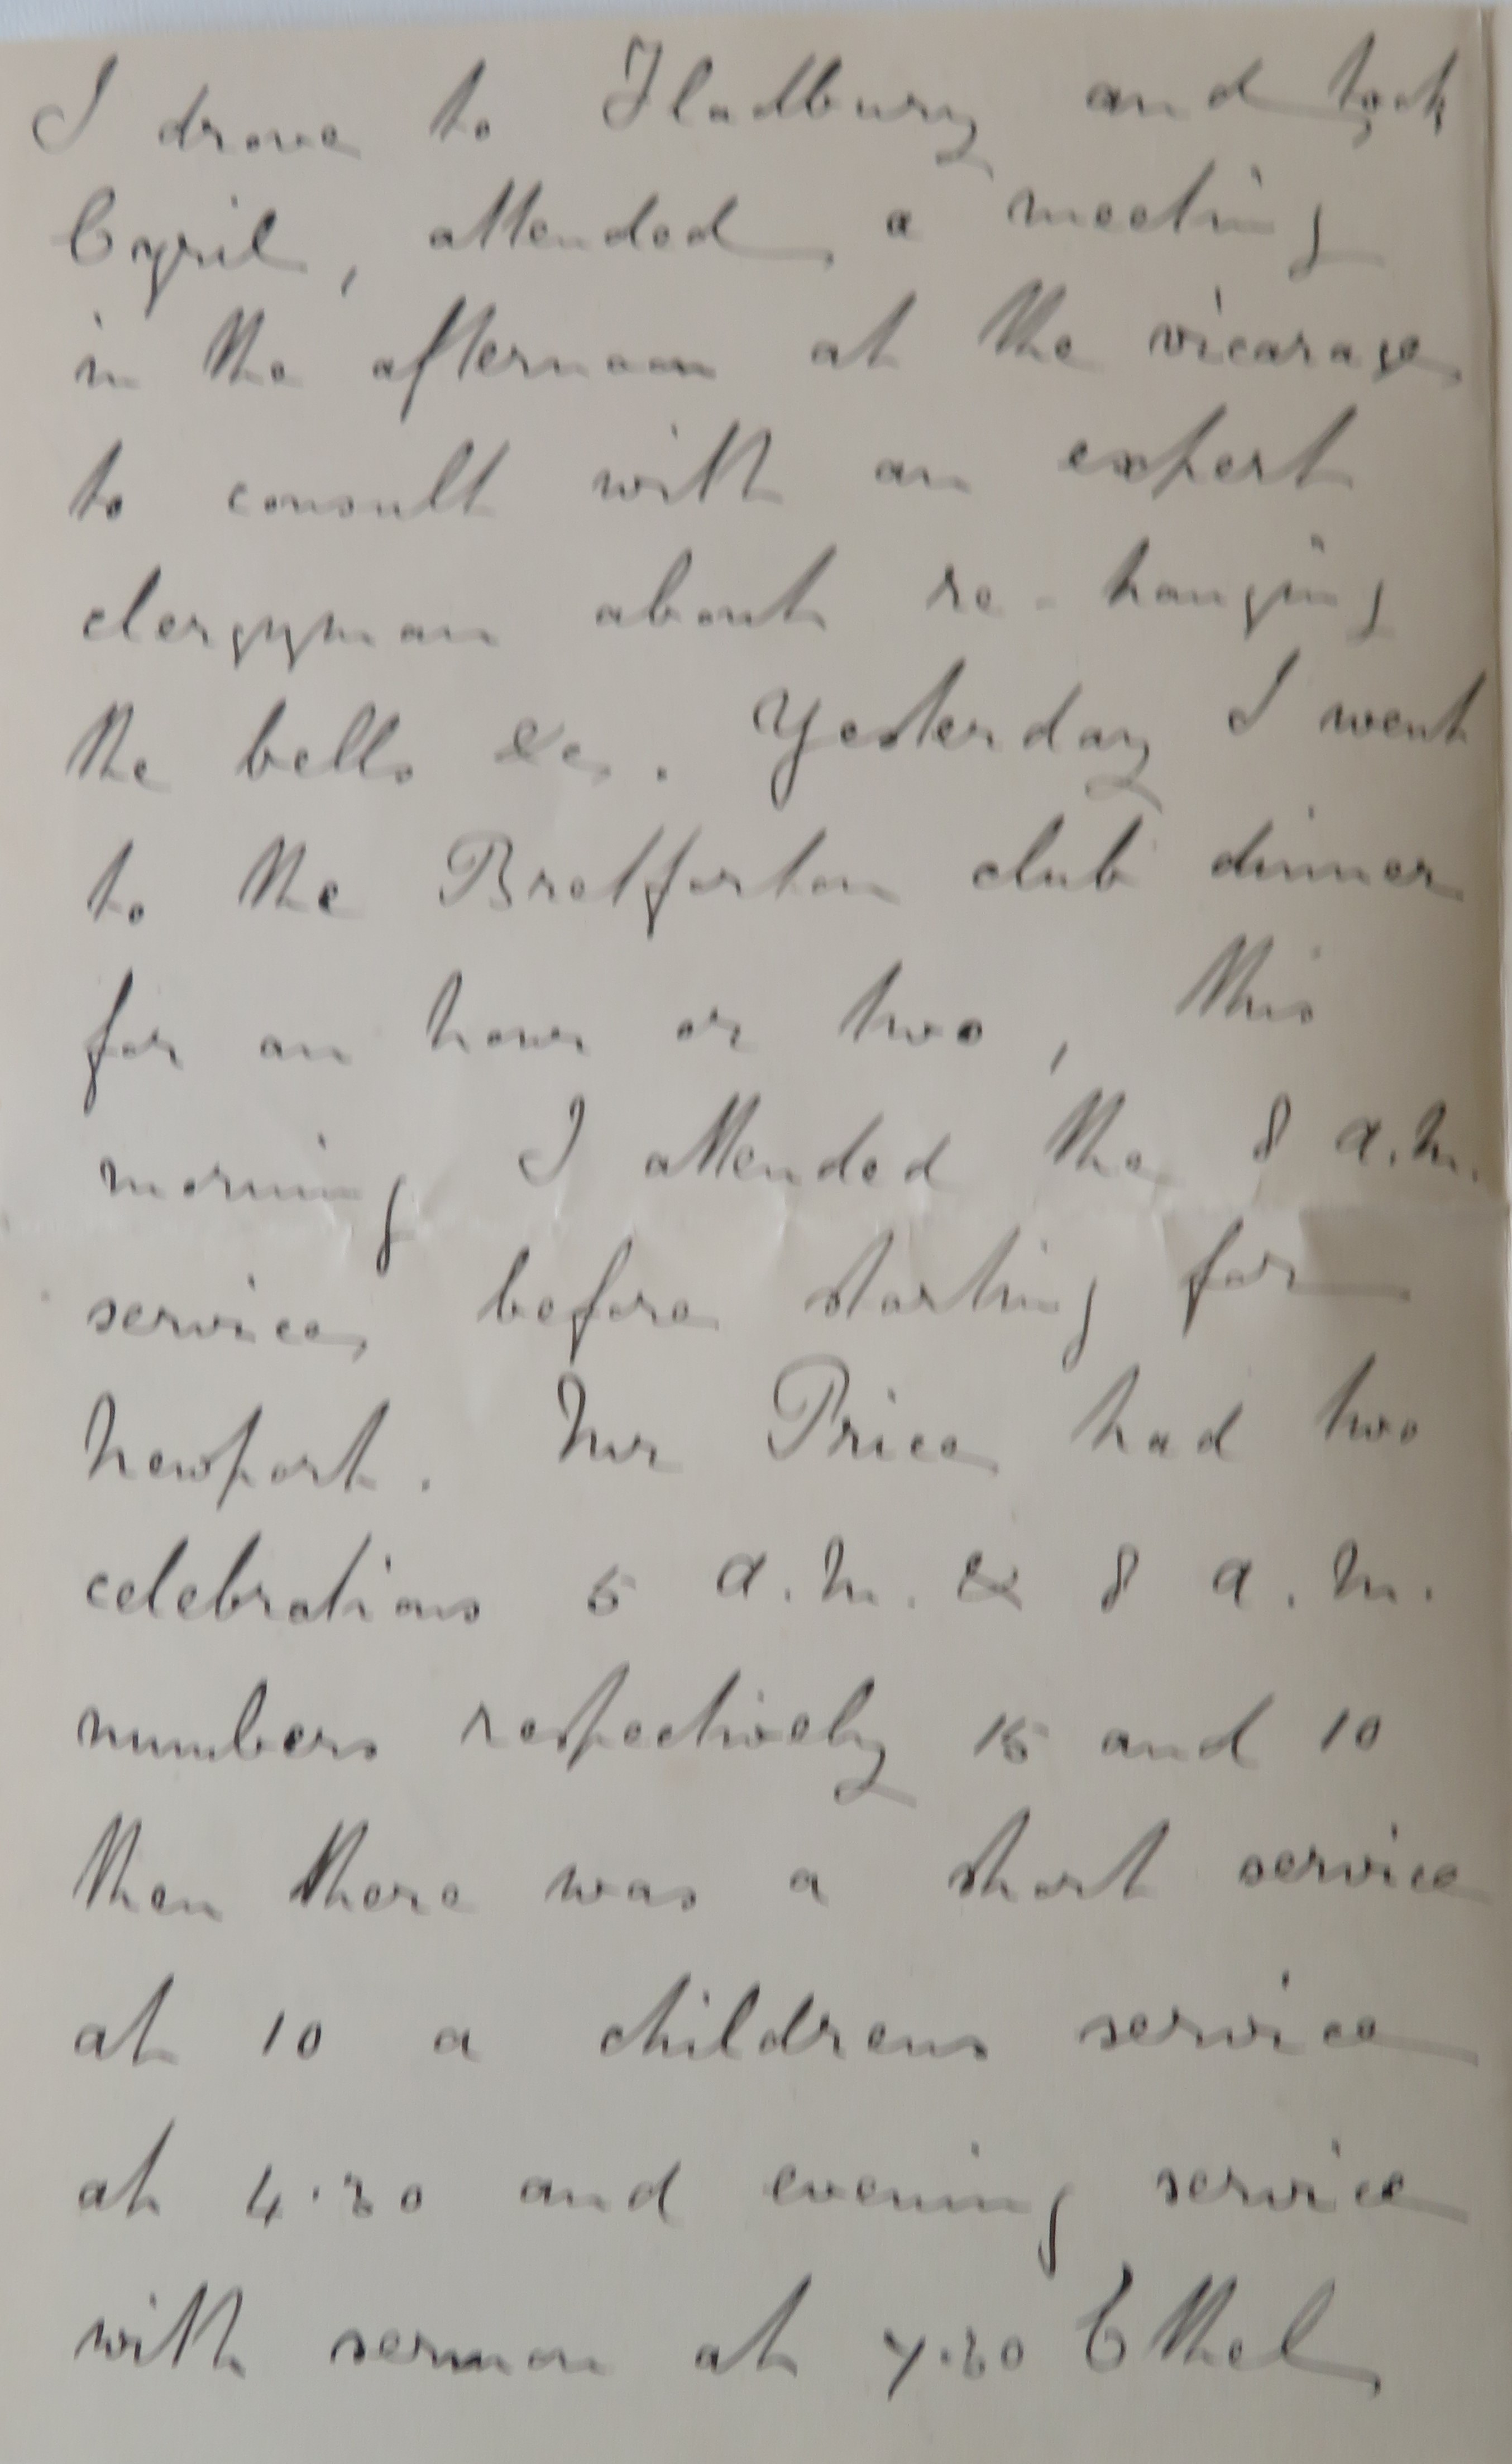 I drove to Fladbury and took
Cyril, attended a meeting
in the afternoon at the vicarage
to consult with an expert
clergyman about re-hanging
the bells &c. Yesterday I went
to the Bretforton club dinner
for an hour or two, this
morning I attended the 8 a.m.
service before starting for
Newport. Mr Price had two
celebrations 5 a.m. & 8 a.m.
numbers respectively 15 and 10
then there was a short service
at 10 a childrens service
at 4.30 and evening service
with sermon at 7.30 Ethel